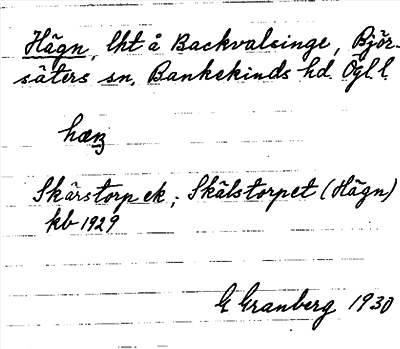 Hägn, lht å Backvalsinge, Björ-
säters sn, Bankekinds hd. Ögl.l.
hæŋ
Skärstorp ek; Skälstorpet (Hägn)
kb 1929
G Granberg 1930